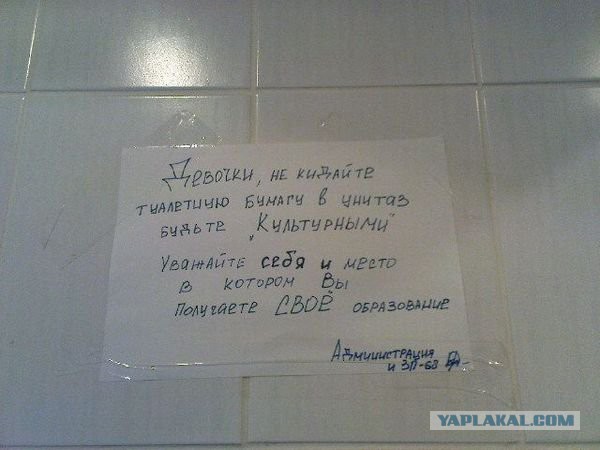 Девочки, не кидайте
туалетную бумагу в унитаз
будьте "Культурными"
Уважайте себя и место
в котором Вы
получаете СВОЁ образование
Администрация
и ЗП-68
YAPLAKAL.COM